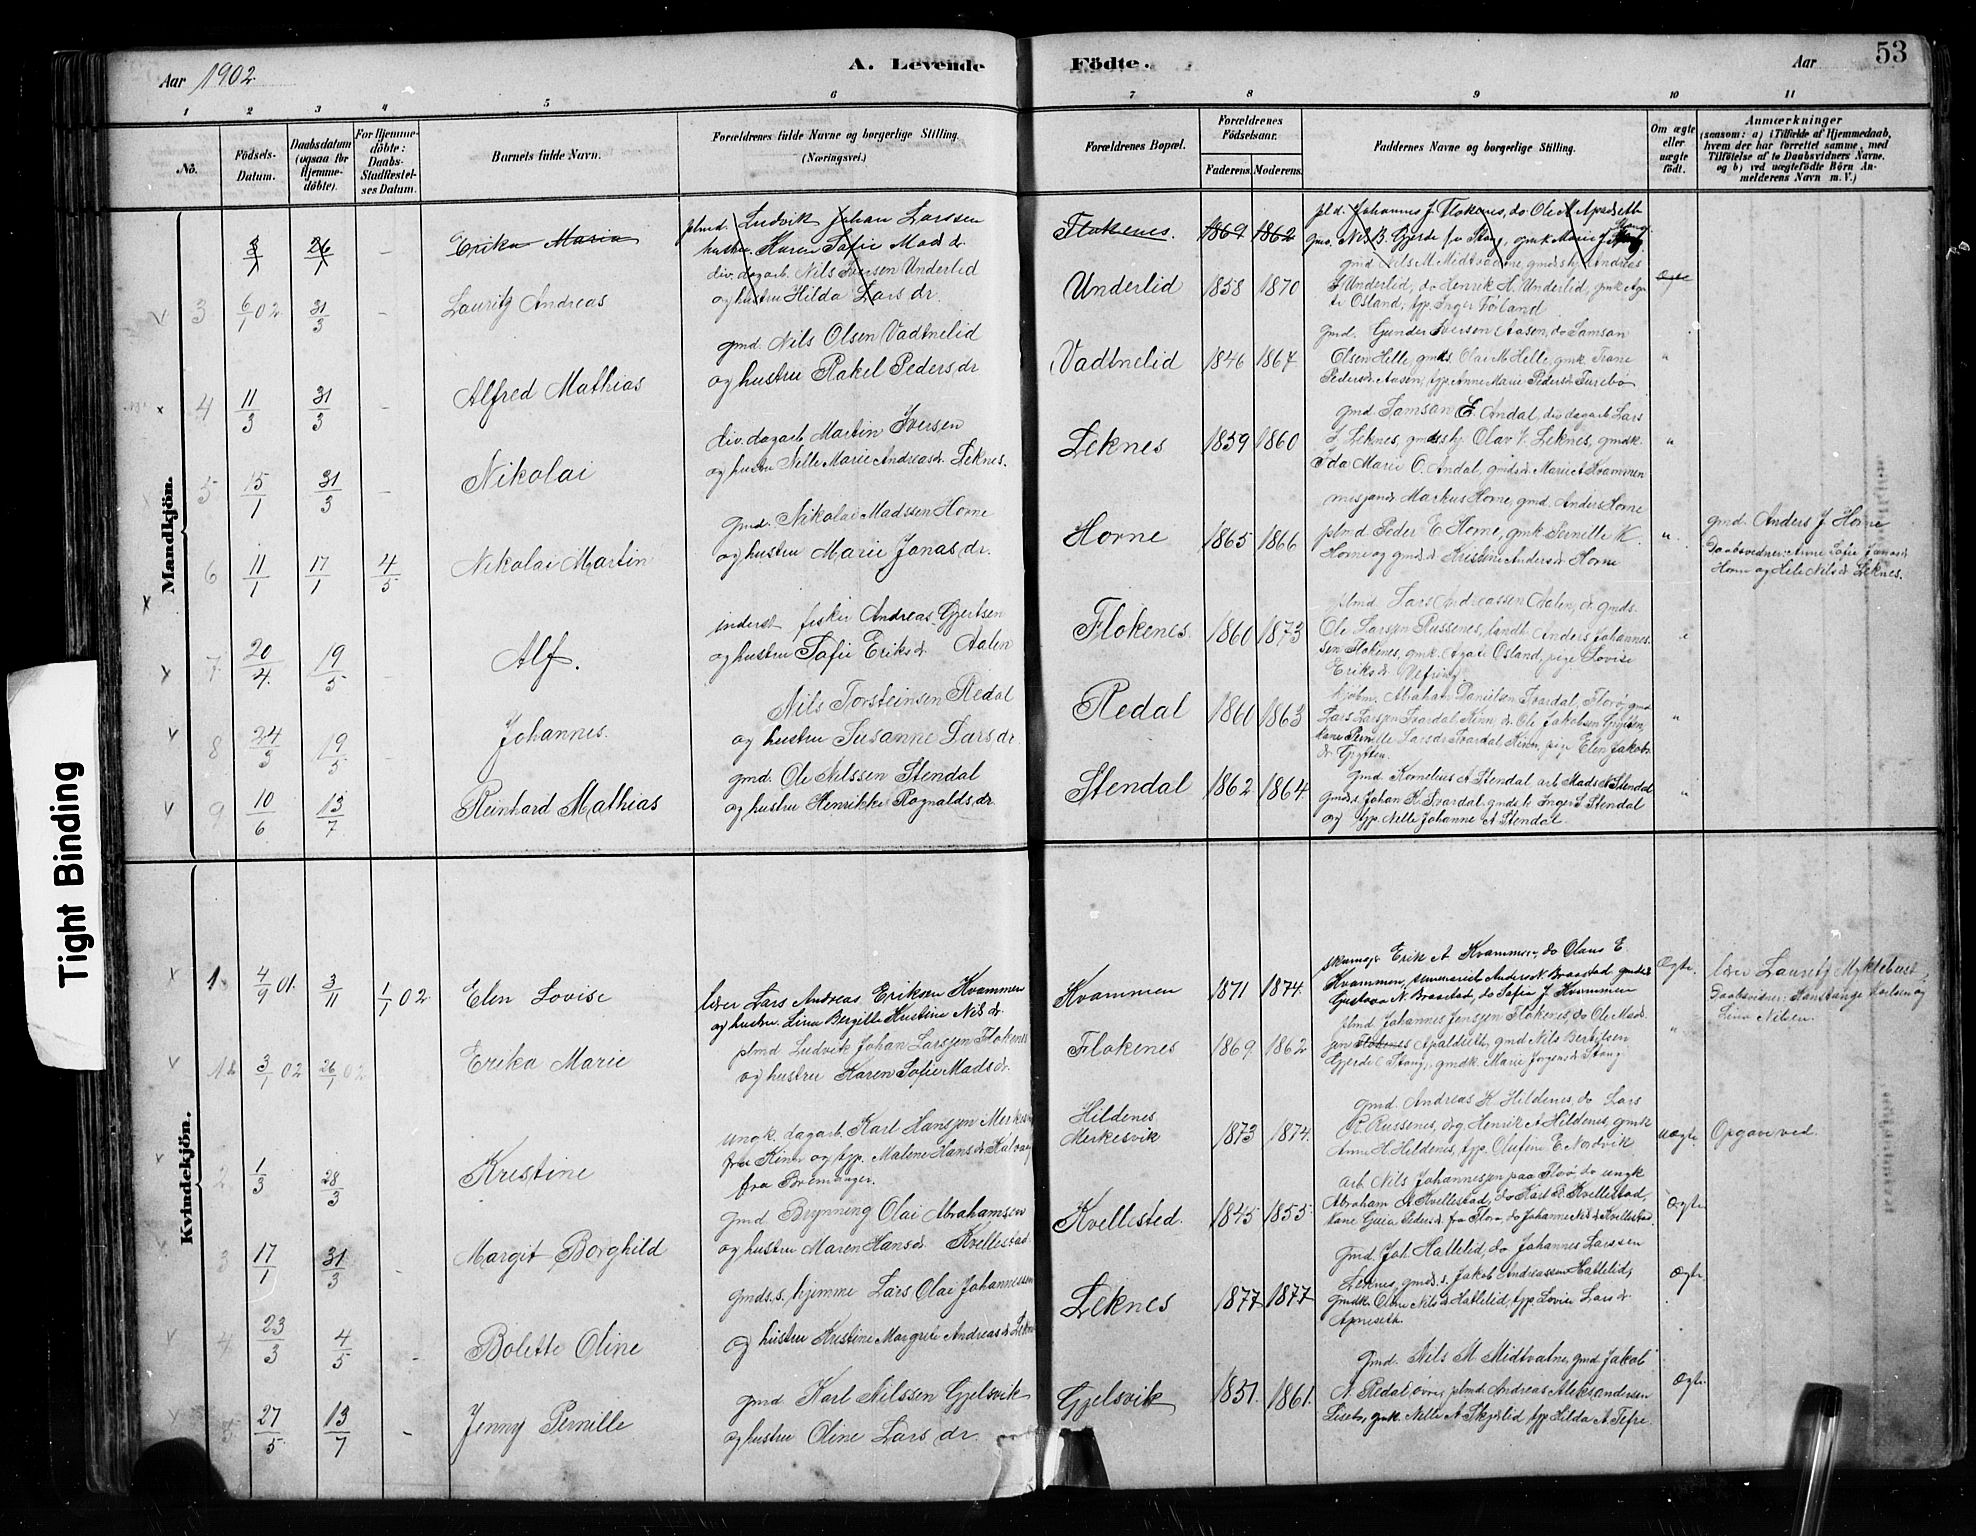 Aar 1902.
A. Levende
Födte.
Aar
53
1 2 3 4 5 6 7 8 9 10 11
No.
Födsels-
Datum.
Daabsdatum
(ogsaa for
Hjemme-
döbte).
For Hjemme-
döbte:
Daabs-
Stadfæstel-
ses Datum.
Barnets fulde Navn.
Forældrenes fulde Navne og borgerlige Stilling.
(Næringsvei.)
Forældrenes Bopæl.
Forældrenes
Födselsaar.
Faderens. Moderens.
Faddernes Navne og borgerlige Stilling.
Om ægte
eller
uægte
födt.
Anmærkninger
(saasom: a) i Tilfælde af Hjemmedaab,
hvem der har forrettet samme, med
Tilföielse af to Daabsvidners Navne.
og b) ved uægtefödte Börn An-
melderens Navn m. V.)
Mandkjön.
3/1 26/1 - Erika Maria
plmd. Ludvik Johan Larssen
hustru Karen Sofie Mads dr.
Flokenes. 1869 1862
pld. Johannes J. Flokenes, do Ole M Apaldseth
gms. Nils B. Gjerde fr Stang, gmk Marie J Stang
3 6/1 02 31/3 - Lauritz Andreas
div. dagarb. Nils Iversen Underlid
og hustru Hilda Lars dr.
Underlid 1858 1870
gmd Nils M Midtvaone, gmdsskj Andreas
I Underlid, do Henrik H. Underlid, gmk
Osland, typ. IngerFöland
Ægte
4 11/3 31/3 - Alfred Mathias
gmd. Nils Olsen Vadtnelid
og hustru Rakel Peders dr
Vadtnelid 1846 1867
gmd. Gunder Iversen Aasen, do Samson
Olsen Hille, gmds. Olai M. Helle, gmk. Trane
Pedersdr Aasen, typ Anne Marie Pedersdr Turebö
"
5 15/1 31/3 - Nikolai
div. dagarb Martin Iversen
og hustru Nelle Marie Andreasdr. Leknes.
Leknes 1859 1860
gmd Samson E. Andal, div dagarb Lars
I. Leknes, gmdsskj. Olav V. Leknes, gmdk.
Ida Marie O. Andal, gmdsdr Marie A Kvammen
"
6 11/1 17/1 4/5 Nikolai Martin
gmd. Nikolai Madssen Horne
og hustru Marie Jonas dr.
Horne 1865 1866
misjandr Markus Horne, gmd Anders Horne
plmd Peder E Horne, gmk Pernille K.
Horne og gmdsdr Kristine Andersdr Horne
"
gmd. Anders J. Horne
Daabsvidner: Anne Sofie Jonasdr
Horne og Hele Nilsdr Leknes.
7 20/4 19/5 - Alf.
inderst fisker Andreas Gjertsen
og hustru Sofie Eriksdr Aalen
Flokenes. 1860 1873
plmd Lars Andreassen Aalen, do gmds.
Ole Larssen Russenes, landh Anders Johannes-
sen Flokenes, gmk. Agate Osland, pige Lovise
Eriksdr Vefring
8 24/3 19/5 - Johannes.
Nils Torsteinsen Redal
og hustru Susanne Lars dr.
Redal 1860 1863
kjöbm. Abraham Danielsen Svardal, Florö, gmd
Lars Larssen Svardal, Kinn, do Ole Jakobsen
kone Pernille Larsdr Svardal, Kinn, pige Elen Jakobs
dr
"
9 10/6 13/7 Reinhard Mathias
gmd. Ole Nilssen Stendal
og hustru Henrikke Rognalds dr.
Stendal 1862 1864.
gmd. Kornelius A Stendal arb Mads N Stendal
gmds. Johan K. Svardal gmdsk Inger S Stendal
og typ. Nelle Johanne A Stendal.
"
Kvindekjön.
1. 4/9 01. 3/11 1/1 02. Elen Lovise
lærer Lars Andreas Eriksen Kvammen
og hustru Lina Bergitte Kristine Nils dr.
Kvammen 1871 1874.
Erik A Kvammen, do Olaus E.
Kvammen, Anders N. Braastad gmdsdr
Gustava N. Braastad, do Sofie J Kvammen
Ægte.
lærer Lauritz Myklebust
Daabsvidner: Konstanse Karlsen og
Lina Nilsen.
3/1 02 26/1 02 Erika Marie
plmd Ludvik Johan Larssen Flokenes
og hustru Karen Sofie Mads dr.
Flokenes 1869. 1862
plmd Johannes Jenssen Flokenes, do Ole Mads
sen Flokenes Apaldseth, gmd Nils Bertilsen
Gjerde Stang, gmdk. Marie Jörgensdr Stang
"
2 1/3 28/3 Kristine
ungk. dagarb. Karl Hanssen Merkesvik
fra Kinn og typ. Malene Hansdr
fra Bremanger.
Hildenes
Merkesvik 1873 1874.
gmd. Andreas H. Hildenes, do Lars
R. Russenes, do Henrik A Hildenes, gmk
Anne H Hildenes, typ. Olufine E Nordvik
uægte.
Opgave ved.
3 17/1 31/3 - Margit Borghild
gmd Brynning Olai Abrahamsen
og hustru Maren Hansdr Kvellestad
Kvellested. 1845 1855
arb Nils Johannessen paa Florö do ungk
Abraham A Kvellestad, do Karl R. Kvellestad,
kone Guia Pedersdr. fra Florö, do Johanne Nilsdr Kvellestad
Ægte
4 23/3 4/5 - Bolette Oline
gmds.s. hjemme Lars Olai Johannessen
og hustru Kristine Margrete Andreasdr Leknes
Leknes 1877 1877
gmd Joh Hattelid, do Johannes Larssen
Leknes, gmds.s. Jakob Andreassen Hattelid,
gmdk Oline Nilsdr Hattelid, typ Lovise Lars dr
Apneseth.
Ægte.
5 27/5. 13/7 - Jenny Pernille
gmd Karl Nilssen Gjelsvik
og hustru Oline Lars dr.
Gjelsvik 1851. 1861.
gmd. Nils M Midtvatne, gmd. Jakob
N. Redal övre, plmd. Andreas Aleksandersen
Liset, gmk. Nelle A Skjerlid typ Hilda A. Tefre.
Ægte.
Tight Binding